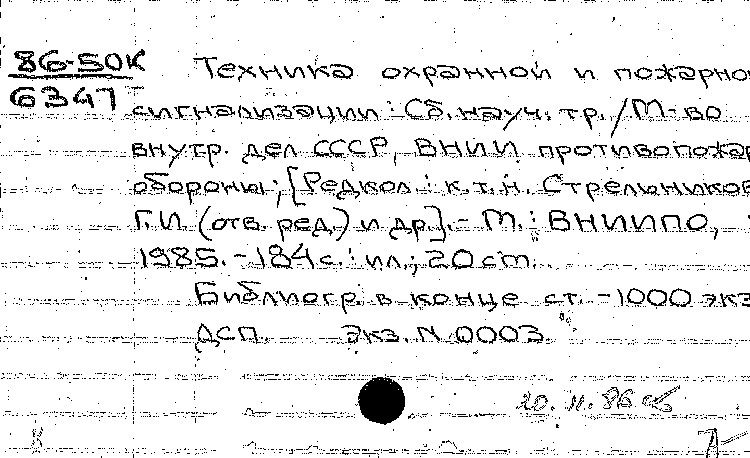 86-50К
6347
Техника охранной и пожарно
сигнализации : Сб. науч. тр. / М-во
внутр. дел СССР, ВНИИ противопожар
обороны ; [Редкол.: к.т.н. Стрельников
Г.И. (отв. ред.) и др.]. - М. : ВНИИПО,
1985. - 184 с. : ил.; 20 cm.
Библиогр. в конце ст. - 1000 экз
ДСП. Экз. N 0003.
20. 11. 86